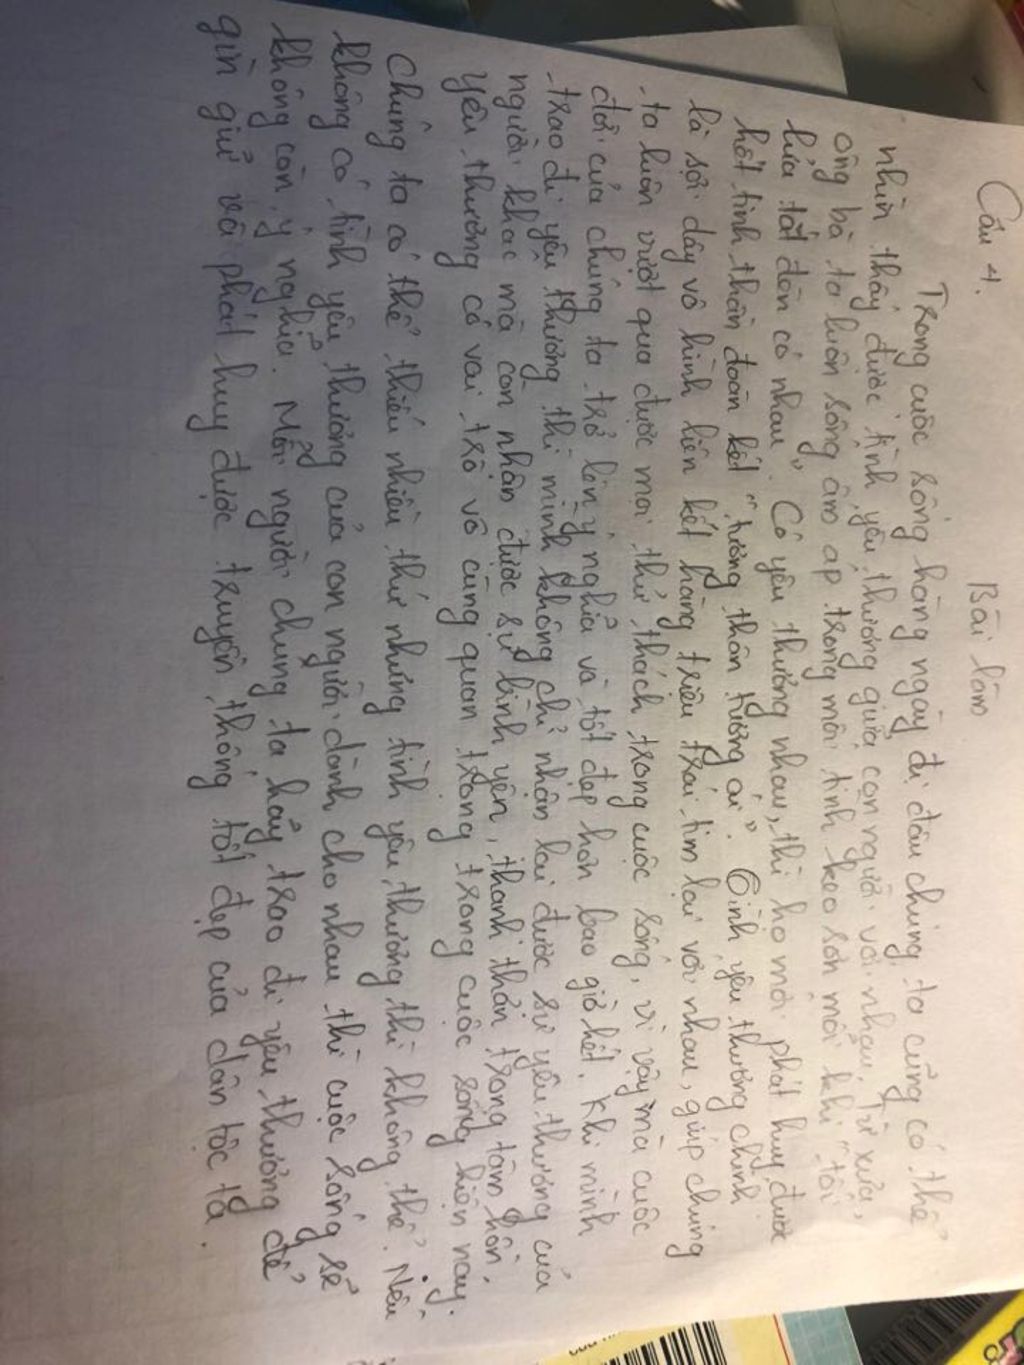 Bài làm
Câu 4.
Trong cuộc sống hàng ngày đi đâu chúng ta cũng có thể
nhìn thấy được tình yêu thương giữa con người với nhau. Từ xưa,
ông bà ta luôn sống ấm áp trong mối tình keo sơn mỗi khi "tối
lửa tắt đèn có nhau". Có yêu thương nhau, thì họ mới phát huy được
hết tinh thần đoàn kết "tương thân tương ái". Tình yêu thương chính
là sợi dây vô hình liên kết hàng triệu trái tim lại với nhau, giúp chúng
ta luôn vượt qua được mọi thử thách trong cuộc sống, vì vậy mà cuộc
đời của chúng ta trở lên ý nghĩa và tốt đẹp hơn bao giờ hết. Khi mình
trao đi yêu thương thì mình không chỉ nhận lại được sự yêu thương của
người khác mà còn nhận được sự bình yên, thanh thản trong tâm hồn.
Yêu thương có vai trò vô cùng quan trọng trong cuộc sống hiện nay.
Chúng ta có thể thiếu nhiều thứ nhưng tình yêu thương thì không thể. Nếu
không có tình yêu thương của con người dành cho nhau thì cuộc sống sẽ
không còn ý nghĩa. Mỗi người chúng ta hãy trao đi yêu thương để
gìn giữ và phát huy được truyền thống tốt đẹp của dân tộc ta.